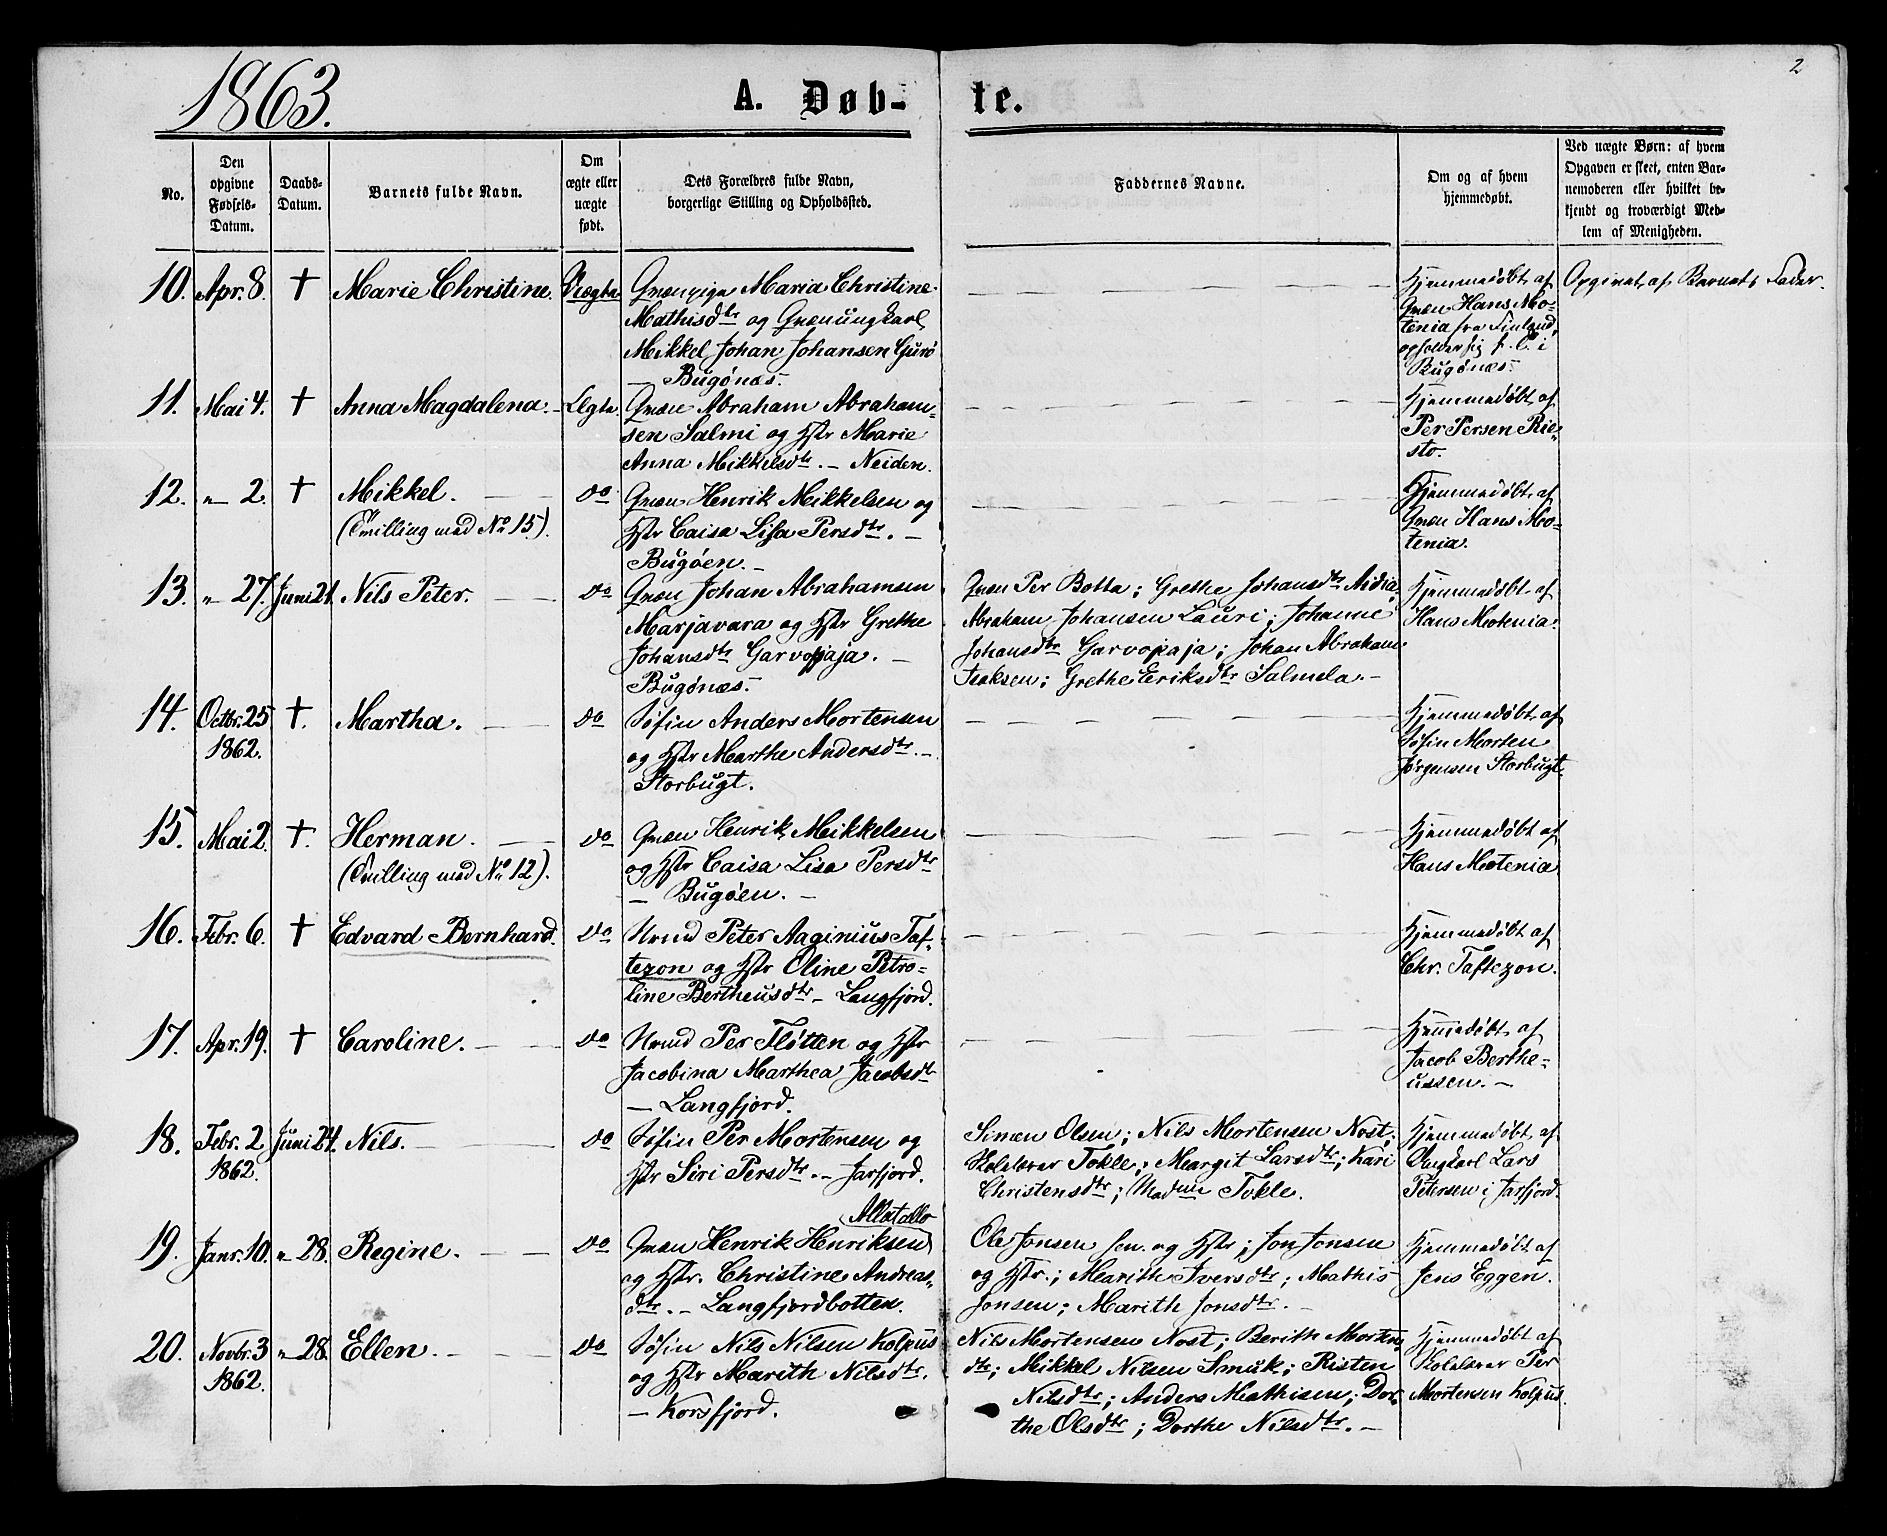 1863.
A. Døb-
te.
2
No.
Den
opgivne
Fødsels-
Datum.
Daabs-
Datum.
Barnets fulde Navn.
Om
ægte eller
uægte
født.
Dets Forældres fulde Navn,
borgerlige Stilling og Opholdssted.
Faddernes Navne.
Om og af hvem
hjemmedøbt.
Ved uægte Børn: af hvem
Opgaven er skeet, enten Bar-
nemoderen eller hvilket be-
kjendt og troværdigt Med-
lem af Menigheden.
10. Apr. 8. † Marie Christine. Uægte
Qvænpige Maria Christine
Mathisdtr og Qvænungkarl
Mikkel Johan Johansen Gurö
— Bugönæs.
Hjemmedøbt af
Qvæn Hans Mo-
tenia fra Finland,
opholder sig p. t. i
Bugönæs.
Opgivet af Barnets Fader.
11. Mai 4. † Anna Magdalena. Ægte
Qvæn Abraham Abraham-
sen Salmi og Hstr Marie
Anna Mikkelsdtr. — Neiden.
Hjemmedøbt af
Per Persen Rie-
sto.
12. " 2. † Mikkel. do
(Tvilling med No 15).
Qvæn Henrik Mikkelsen og
Hstr Caisa Lisa Persdtr. —
Bugöen. —
Hjemmedøbt af
Qvæn Hans Mo-
tenia.
13. " 27. Juni 21. Nils Peter. do
Qvæn Johan Abrahamsen
Marjavara og Hstr Grethe
Johansdtr Garvopaja. —
Bugönæs.
Qvæn Per Botta; Grethe Johansdtr Aidia;
Abraham Johansen Lauri; Johanne
Johansdtr Garvopaja; Johan Abraham
Isaksen; Grethe Eriksdtr Salmela. —
Hjemmedøbt af
Hans Motenia.
14. Octbr. 25 †. Martha. do
1862.
Søfin Anders Mortensen
og Hstr Marthe Andersdtr. —
Storbugt.
Hjemmedøbt af
Søfin Morten
Jørgensen Storbugt.
15. Mai 2. †. Herman. do
(Tvilling med No 12).
Qvæn Henrik Mikkelsen
og Hstr Caisa Lisa Persdtr
— Bugöen. —
Hjemmedøbt af
Hans Motenia
16. Febr. 6. † Edvard Bernhard. do
Nmd Peter Aaginius Taf-
tezon og Hstr Oline Petro-
line Bertheusdtr — Langfjord.
Hjemmedøbt af
Chr. Taftezon.
17. Apr. 19. † Caroline. do
Nmd Per Fløtten og Hstr
Jacobina Marthea Jacobsdtr
— Langfjord.
Hjemmedøbt af
Jacob Berthe-
ussen. —
18. Febr. 2 Juni 24. Nils. do
1862.
Søfin Per Mortensen og
Hstr Siri Persdtr. — Jarfjord.
Simen Olsen; Nils Mortensen Nost;
Skolelærer Tokle; Margit Larsdtr; Kari
Christensdtr; Madme Tokle.
Hjemmedøbt af
Ungkarl Lars
Petersen i Jarfjord.
19. Janr. 10. " 28. Regine. do
Allatallo
Qvæn Henrik Henriksen
og Hstr. Christine Andreas-
dtr. — Langfjordbotten.
Ole Jonsen sen. og Hstr; Jon Jonsen
og Hstr.; Marith Iversdtr; Mathis
Jonsen; Marith Jonsdtr. —
Hjemmedøbt af
Jens Eggen.
20. Novbr. 3 " 28. Ellen. do
1862.
Søfin Nils Nilsen Kolpus
og Hstr Marith Nilsdtr.
— Korsfjord.
Nils Mortensen Nost; Berith Mortens-
dtr; Mikkel Nilsen Smuk; Risten
Nilsdtr; Anders Mathisen; Dor-
the Olsdtr; Dorthe Nilsdtr. —
Hjemmedøbt af
Skolelærer Per
Mortensen Kolpus.